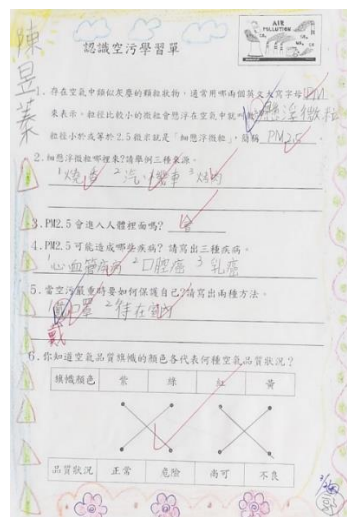 陳昱蓁
認識空污學習單
AIR
POLLUTION
1. 存在空氣中類似灰塵的顆粒狀物，通常用哪兩個英文大寫字母PM
來表示。粒徑比較小的微粒會懸浮在空氣中就叫做懸浮微粒
粒徑小於或等於2.5微米就是「細懸浮微粒」，簡稱 PM2.5 。
2. 細懸浮微粒哪裡來?請舉例三種來源。
1燒香 2汽、機車 3烤肉
3. PM2.5 會進入人體裡面嗎? 會
4. PM2.5 可能造成哪些疾病? 請寫出三種疾病。
1心血管疾病 2口腔癌 3乳癌
5. 當空污嚴重時要如何保護自己?請寫出兩種方法。
1戴口罩 2待在室內
戴
6. 你知道空氣品質旗幟的顏色各代表何種空氣品質狀況?
旗幟顏色 紫 綠 紅 黃
品質狀況 正常 危險 尚可 不良